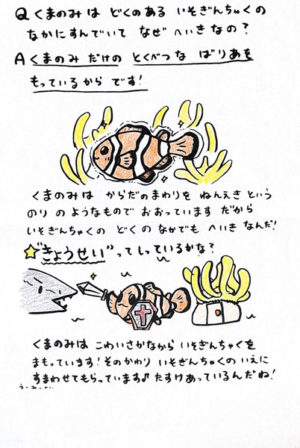 Q くまのみは どくのある いそぎんちゃくの
なかにすんでいて なぜ へいきなの?
A くまのみ だけの とくべつな ばりあを
もっているから です!
くまのみは からだのまわりを ねんえき という
のり のようなもので おおっています だから
いそぎんちゃくの どくの なかでも へいき なんだ!
☆"きょうせい"ってしっているかな?
くまのみは こわいさかなから いそぎんちゃくを
まもっています! そのかわり いそぎんちゃくの いえに
すまわせてもらっています♪ たすけあっているんだね!